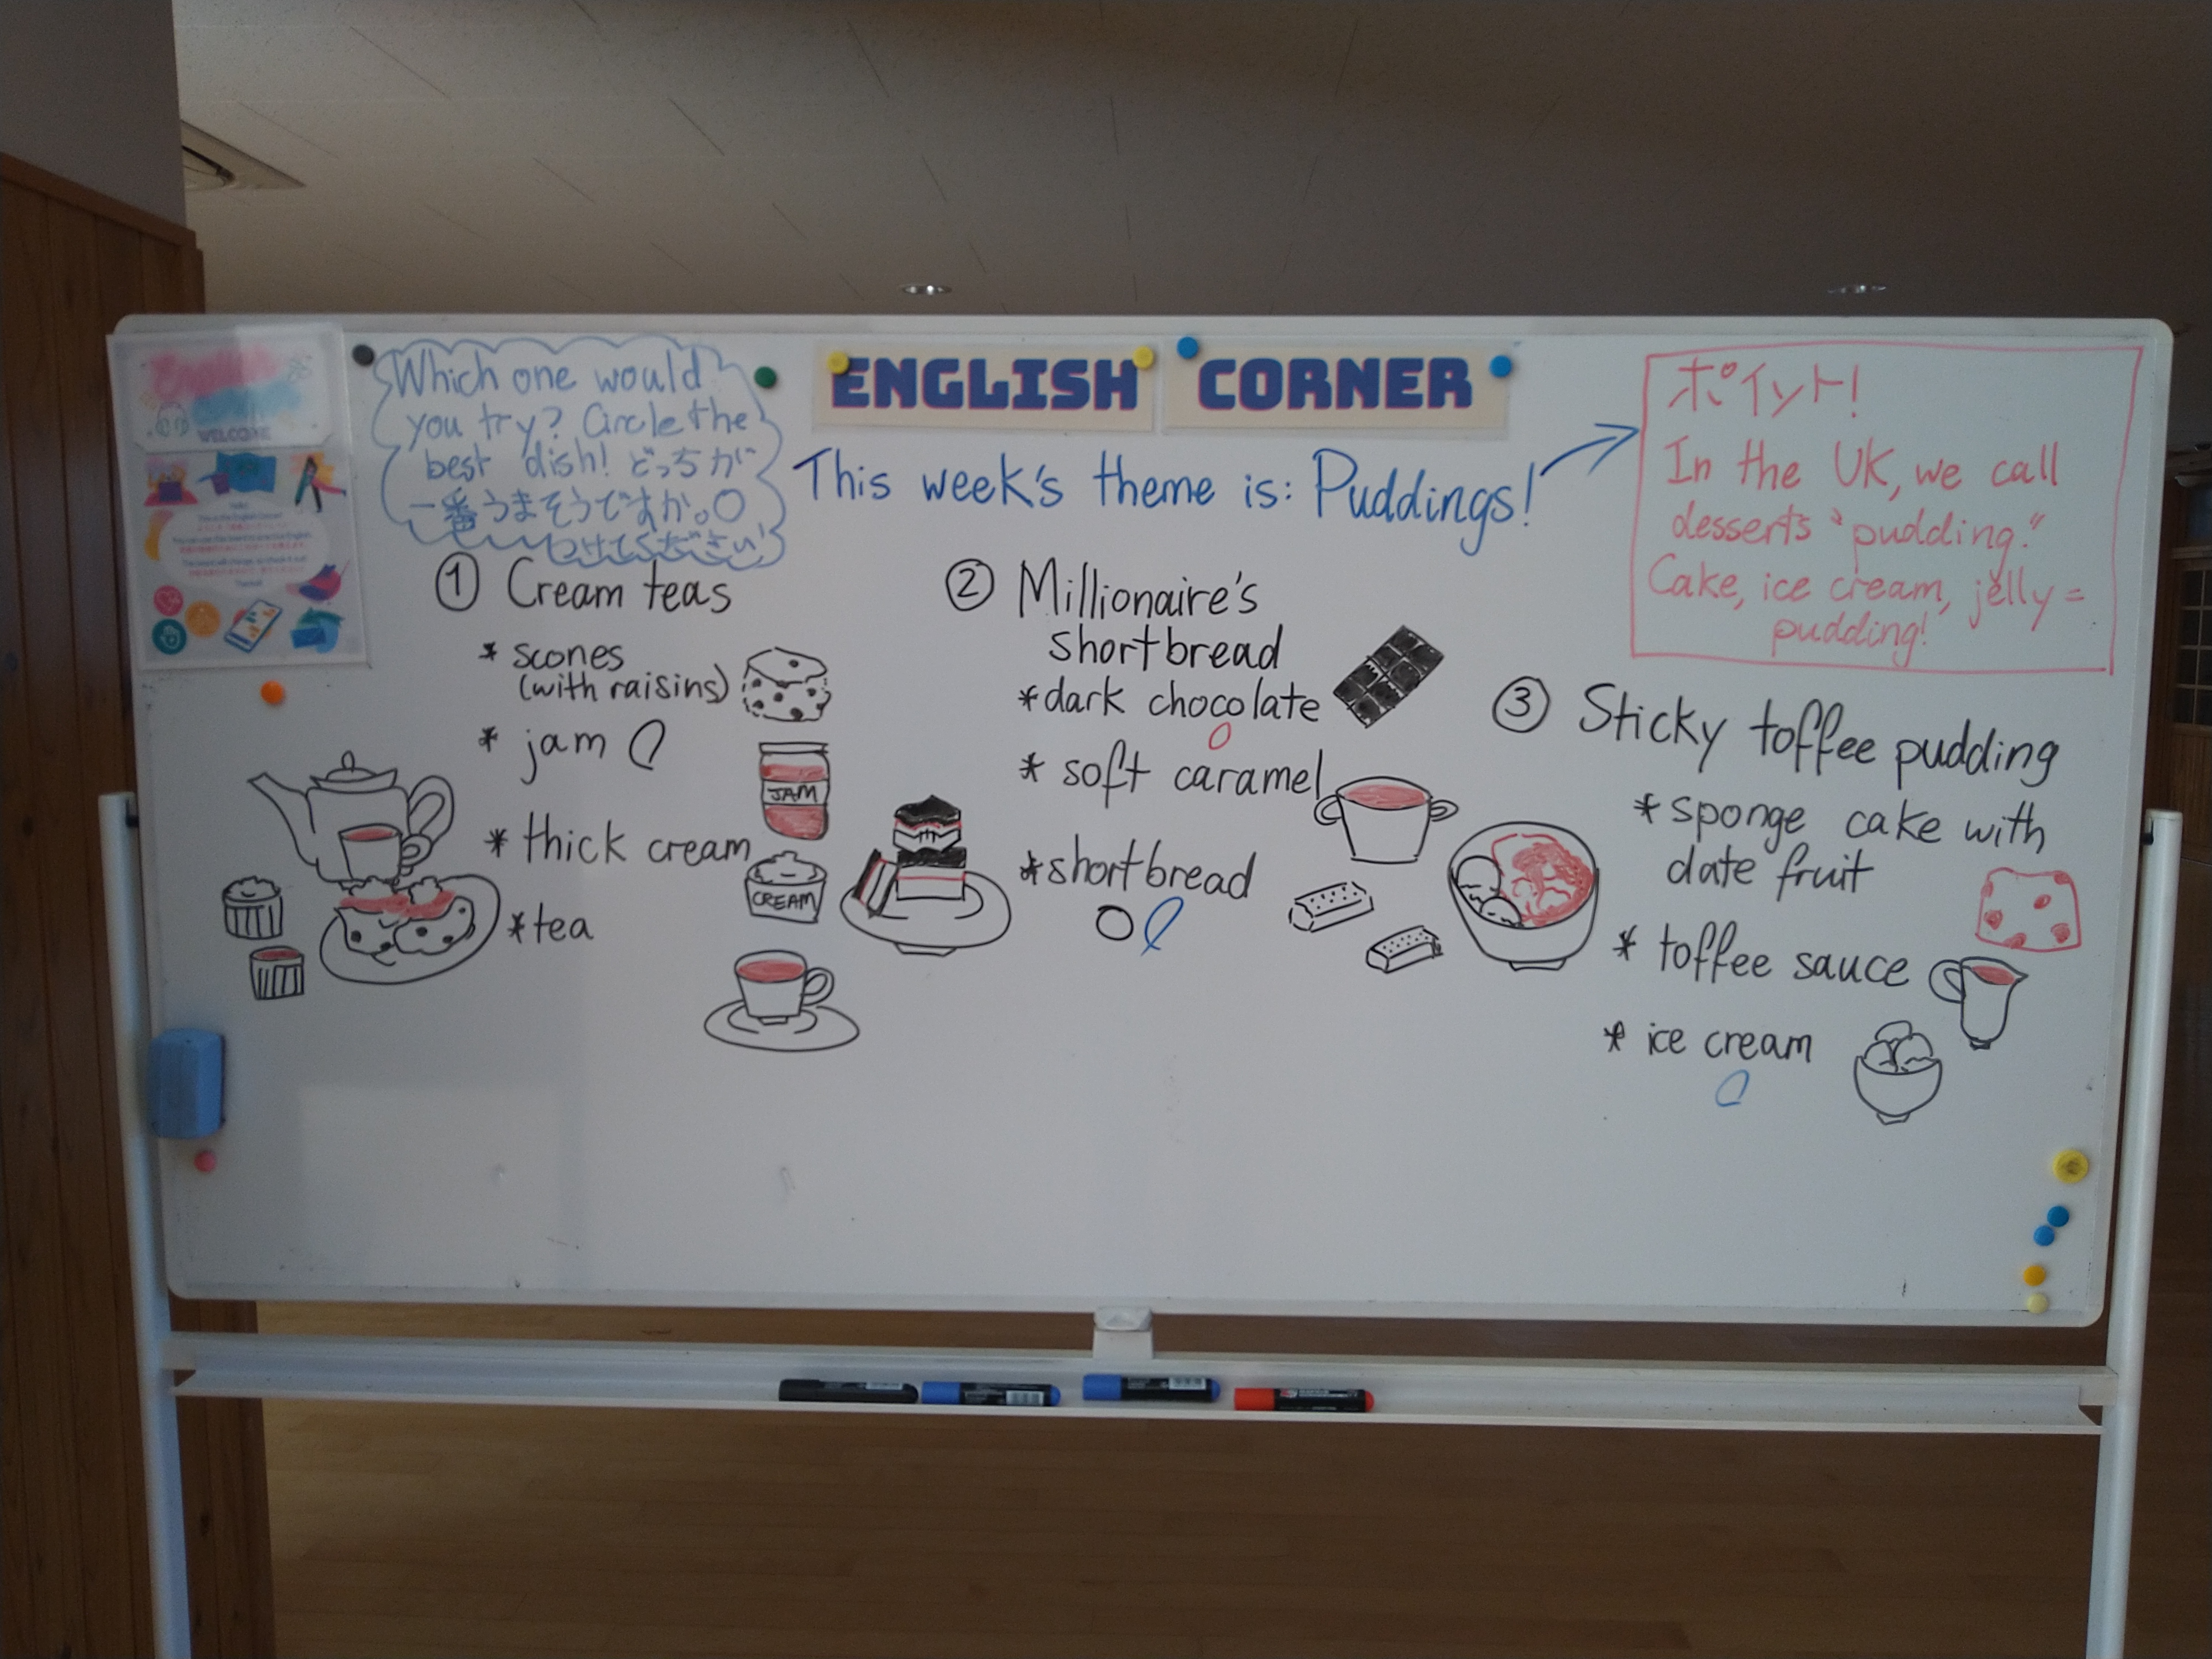 WELCOME
Which one would
you try? Circle the
best dish! どっちが
一番うまそうですか。○
つけてください!
ENGLISH CORNER
This week's theme is: Puddings!
ポイント!
In the UK, we call
desserts "pudding."
Cake, ice cream, jelly =
pudding!
① Cream teas
* scones
(with raisins)
* jam
JAM
* thick cream
CREAM
* tea
② Millionaire's
shortbread
* dark chocolate
* soft caramel
* shortbread
③ Sticky toffee pudding
* sponge cake with
date fruit
* toffee sauce
* ice cream